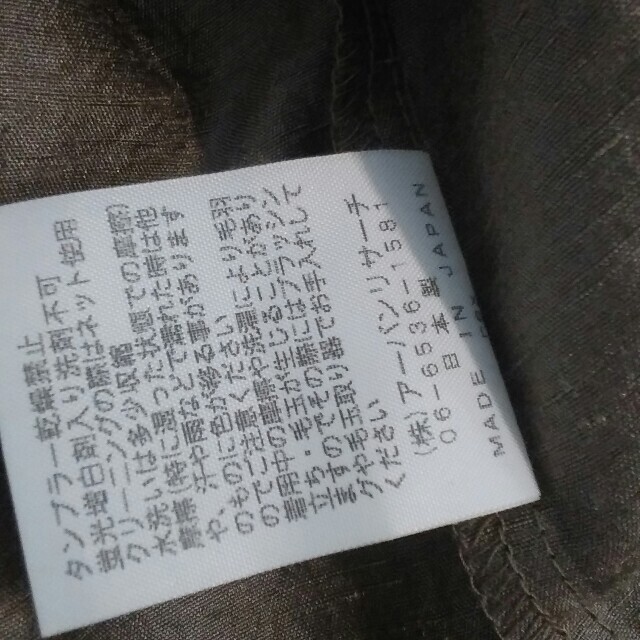 タンブラー乾燥禁止
蛍光増白剤入り洗剤不可
クリーニングの際はネット使用
水洗いは多少の収縮
摩擦(特に湿った状態での摩擦)
汗や雨などで濡れた時は他
のものに色が移る事があります
のでご注意ください
着用中、摩擦や洗濯により毛羽
立ちや毛玉が生じることがあり
ますのでその際にはブラッシン
グや毛玉取り器でお手入れして
ください
(株)アーバンリサーチ
06-6536-1581
日本製
MADE IN JAPAN